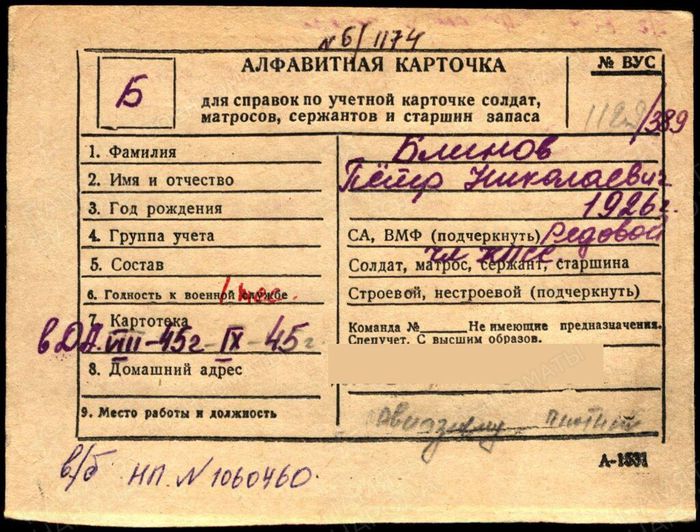 N 6/1174
АЛФАВИТНАЯ КАРТОЧКА
№ ВУС
Б
для справок по учетной карточке солдат,
матросов, сержантов и старшин запаса
/389
1. Фамилия
Блинов
2. Имя и отчество
Пётр Николаевич
3. Год рождения
1926г.
4. Группа учета
СА, ВМФ (подчеркнуть) Рядовой
5. Состав
чл КПСС
Солдат, матрос, сержант, старшина
6. Годность к военной службе
Строевой, нестроевой (подчеркнуть)
7. Картотека
Команда № Не имеющие предназначения.
в ДА VIII-45г-IX-45г
Спецучет. С высшим образов.
8. Домашний адрес
9. Место работы и должность
в/б НП. N 1060460.
А-1531